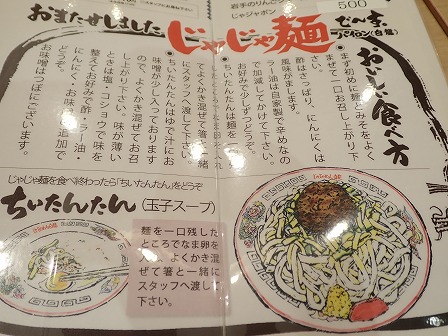 岩手のりんご
じゃジャポン
500
おまたせしました
じゃじゃ麺
でんす
パイロン(白龍)
おいしい食べ方
まず初めに麺とみそをよく
まぜて一口お召し上がり下
酢はさっぱり、にんにくは
風味がまします。
ラー油は自家製で辛めなの
で加減してかけて下さい。
お好みで少しずつどうぞ。
ちいたんたんは麺を一
てよくかき混ぜて箸と一緒
にスタッフへ渡して下さい
ちいたんたんはゆで汁にお
味噌が少し入っております
よくかき混ぜてお召
し上がり下さい。味が薄い
ときは塩・コショウで味を
整えてお好みで酢・ラー油・
にんにく・お味噌を追加で
どうぞ。
お味噌はつぼにございます。
じゃじゃ麺を食べ終わったら「ちいたんたん」をどうぞ
ちいたんたん(玉子スープ)
麺を一口残した
ところでなま卵を
とき、よくかき混
ぜて箸と一緒に
スタッフへ渡して
下さい。